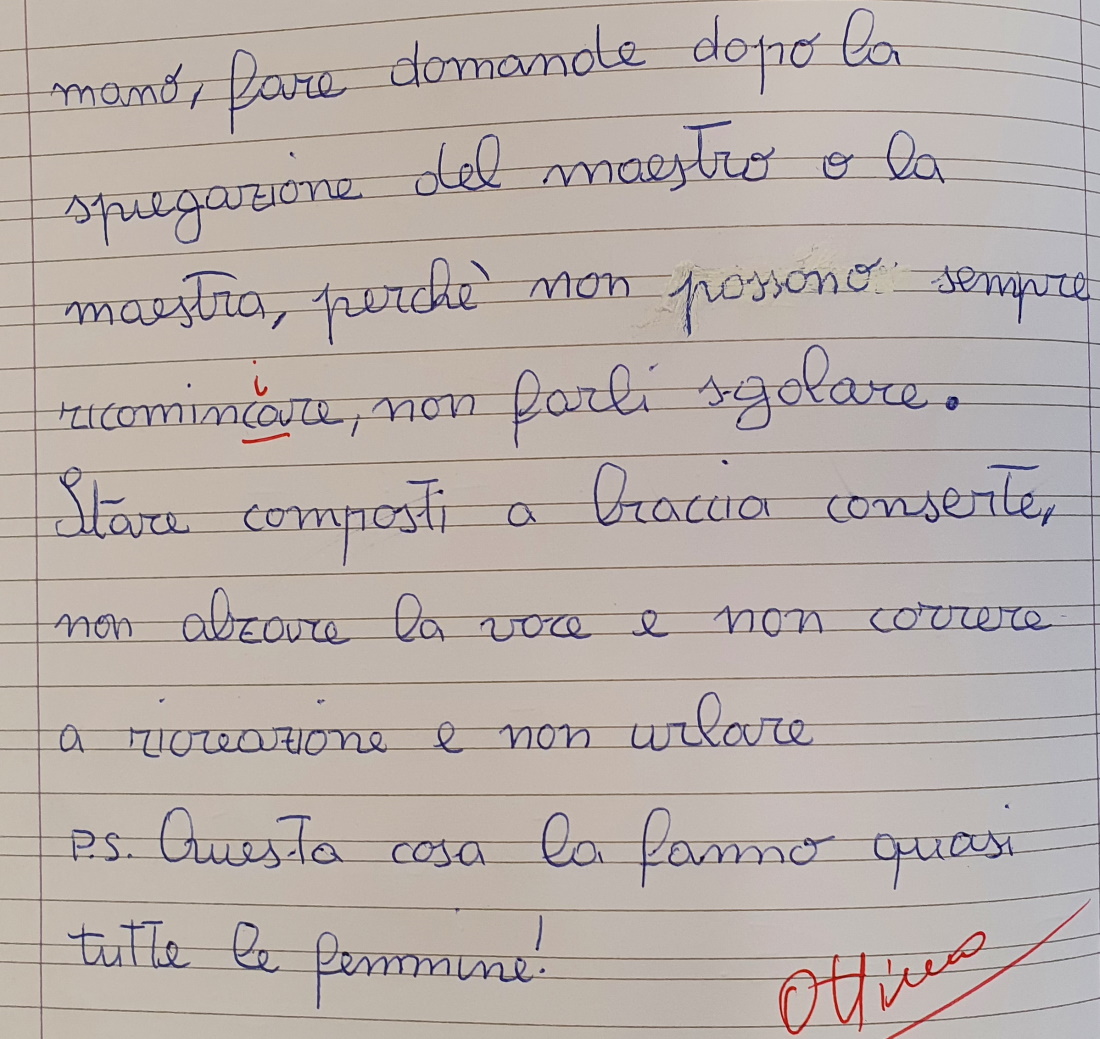 mano, fare domande dopo la
spiegazione del maestro o la
maestra, perchè non possono sempre
i
ricomincare, non farli sgolare.
Stare composti a braccia conserte,
non alzare la voce e non correre
a ricreazione e non urlare
P.S. Questa cosa la fanno quasi
tutte le femmine!
Ottimo